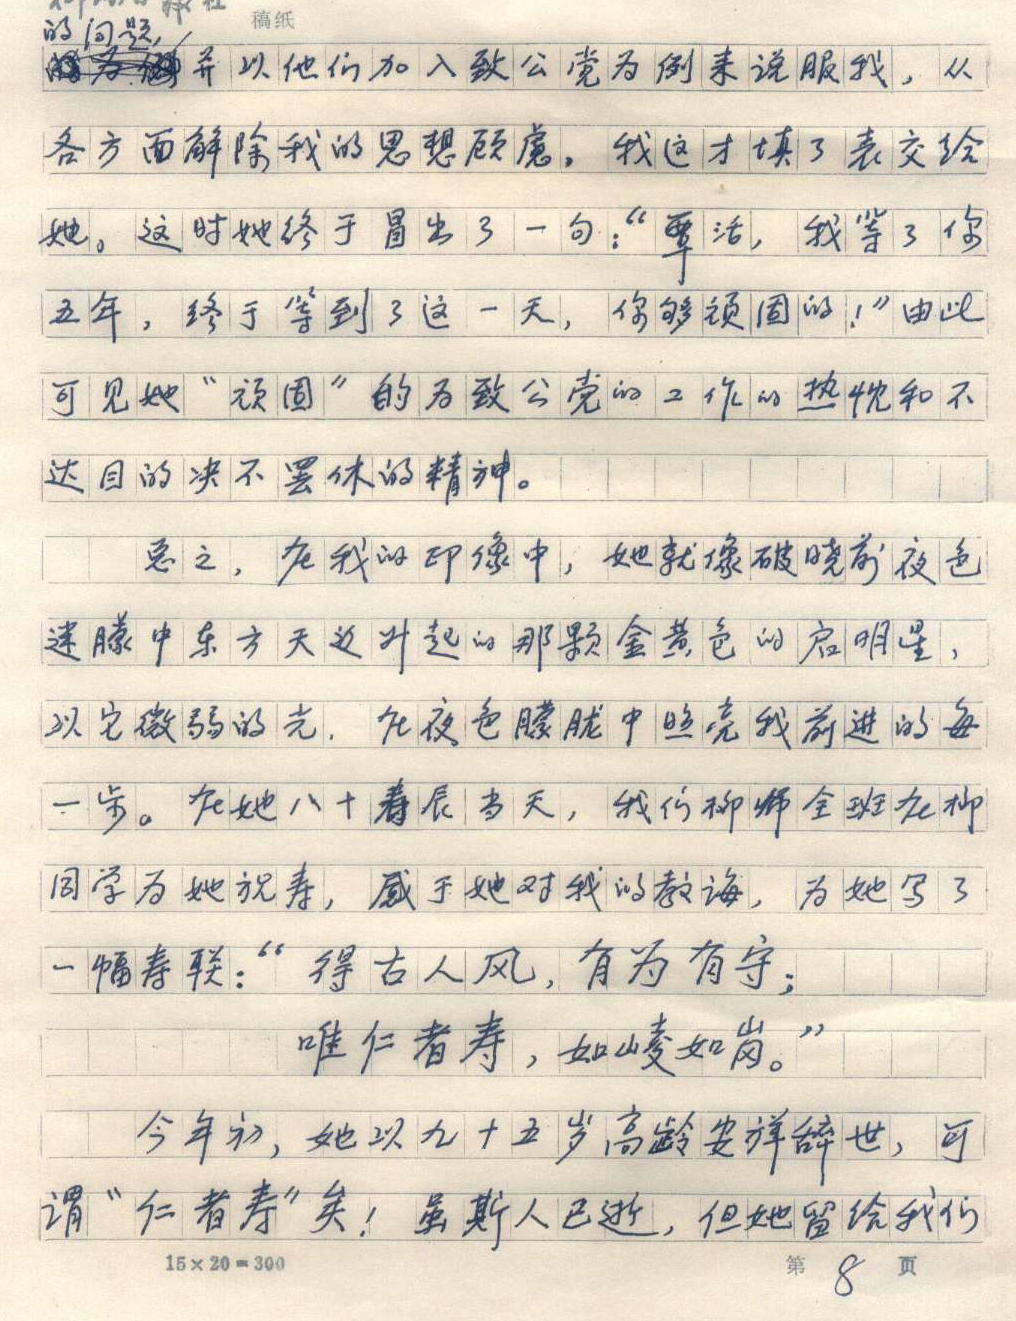 稿纸
的问题，
并以他们加入致公党为例来说服我，从
各方面解除我的思想顾虑。我这才填了表交给
她。这时她终于冒出了一句：“覃活，我等了你
五年，终于等到了这一天，你够顽固的！”由此
可见她“顽固”的为致公党的工作的热忱和不
达目的决不罢休的精神。
总之，在我的印像中，她就像破晓前夜色
迷朦中东方天边升起的那颗金黄色的启明星，
以它微弱的光．在夜色朦胧中照亮我前进的每
一步。在她八十寿辰当天，我们柳师全班在柳
同学为她祝寿，感于她对我的教诲，为她写了
一幅寿联：“得古人风，有为有守；
唯仁者寿，如崚如岗。”
今年初，她以九十五岁高龄安详辞世，可
谓“仁者寿”矣！虽斯人已逝，但她留给我们
15×20=300 第 8 页